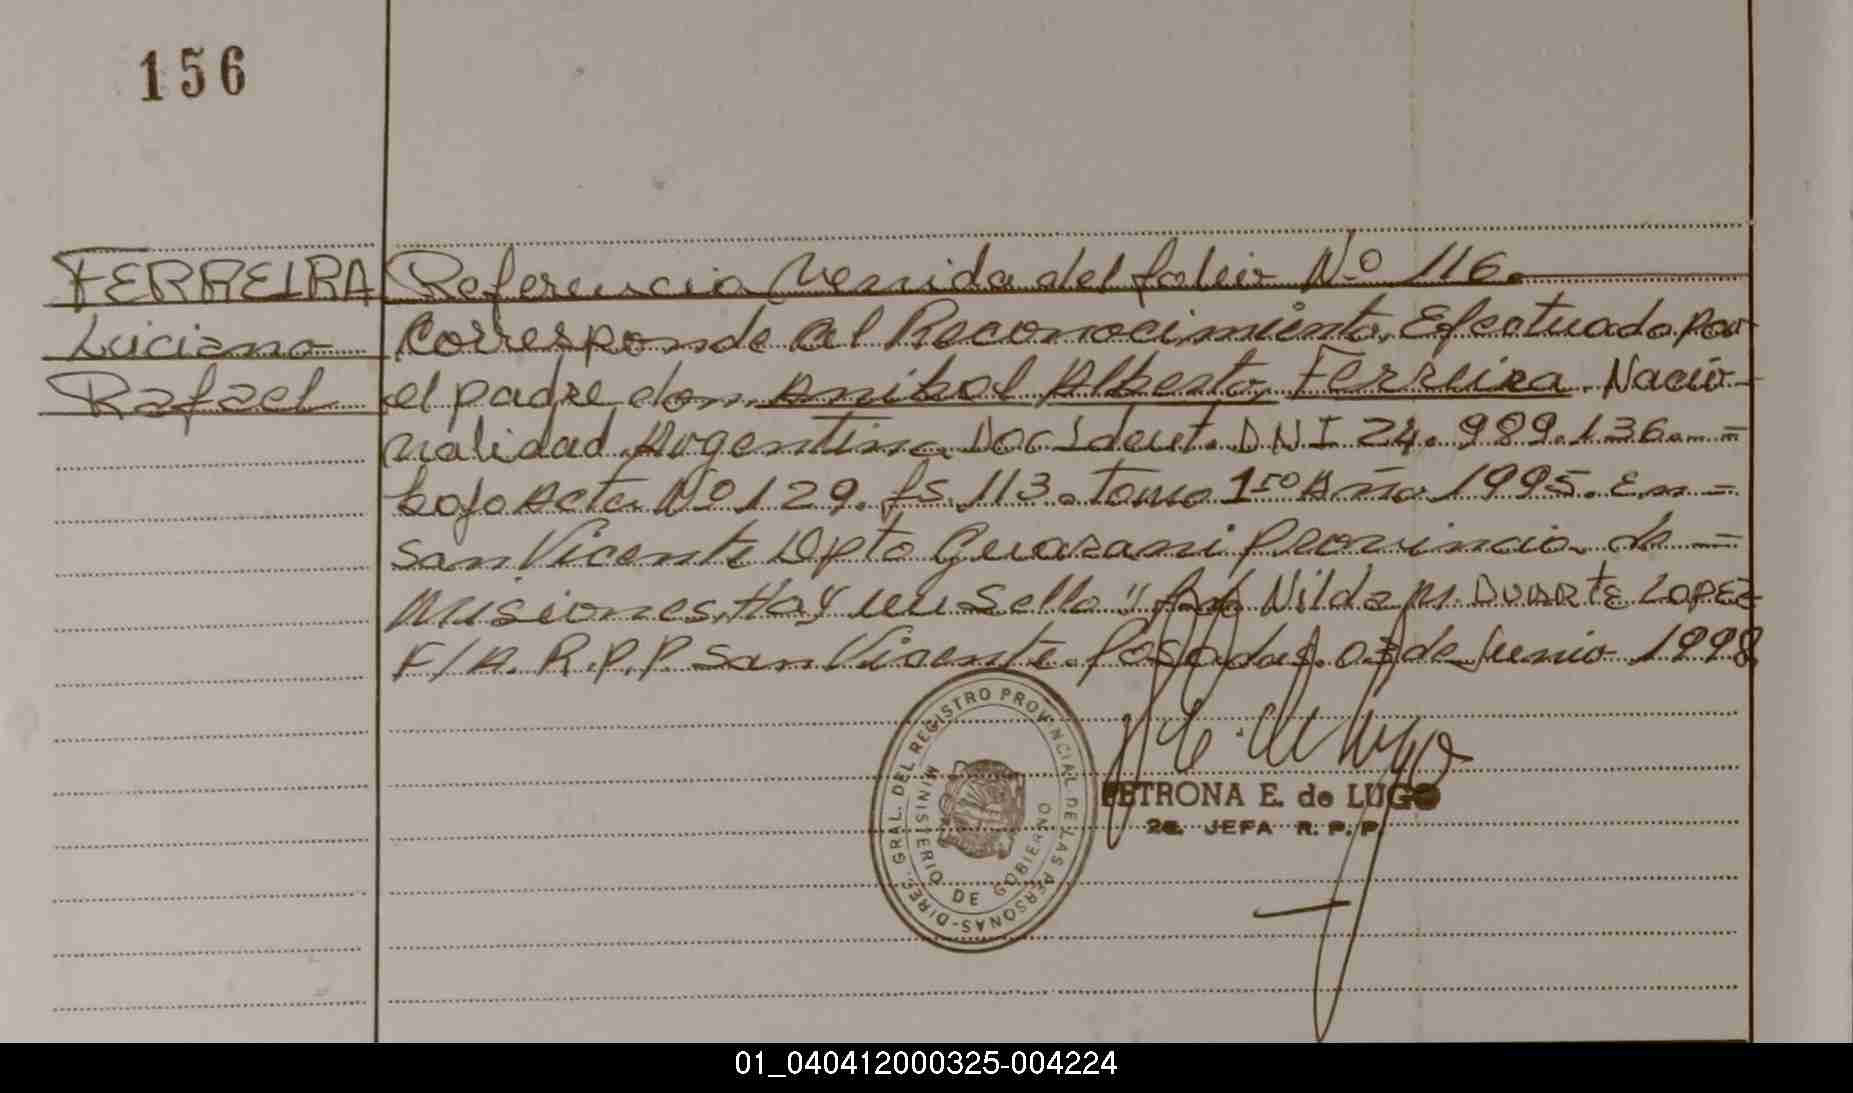 156
FERREIRA
Luciano
Rafael
Referencia Venida del folio Nº 116.
Corresponde al Reconocimiento, Efectuado por
el padre don Anibal Alberto Ferreira. Nacio-
nalidad Argentina Doc Ident. DNI 24.989.136.=
bajo Acta Nº 129. fs. 113. Tomo 1ro Año 1995. En =
San Vicente Dpto Guarani Provincia de =
Misiones, Hay un Sello " Nilda M. DUARTE LOPEZ
F/A. R.P.P. San Vicente. Posadas. 03 de Junio 1998
DIREC. GRAL. DEL REGISTRO PROVINCIAL DE LAS PERSONAS-
MINISTERIO DE GOBIERNO
PETRONA E. de LUGO
2a. JEFA R. P. P.
01_040412000325-004224